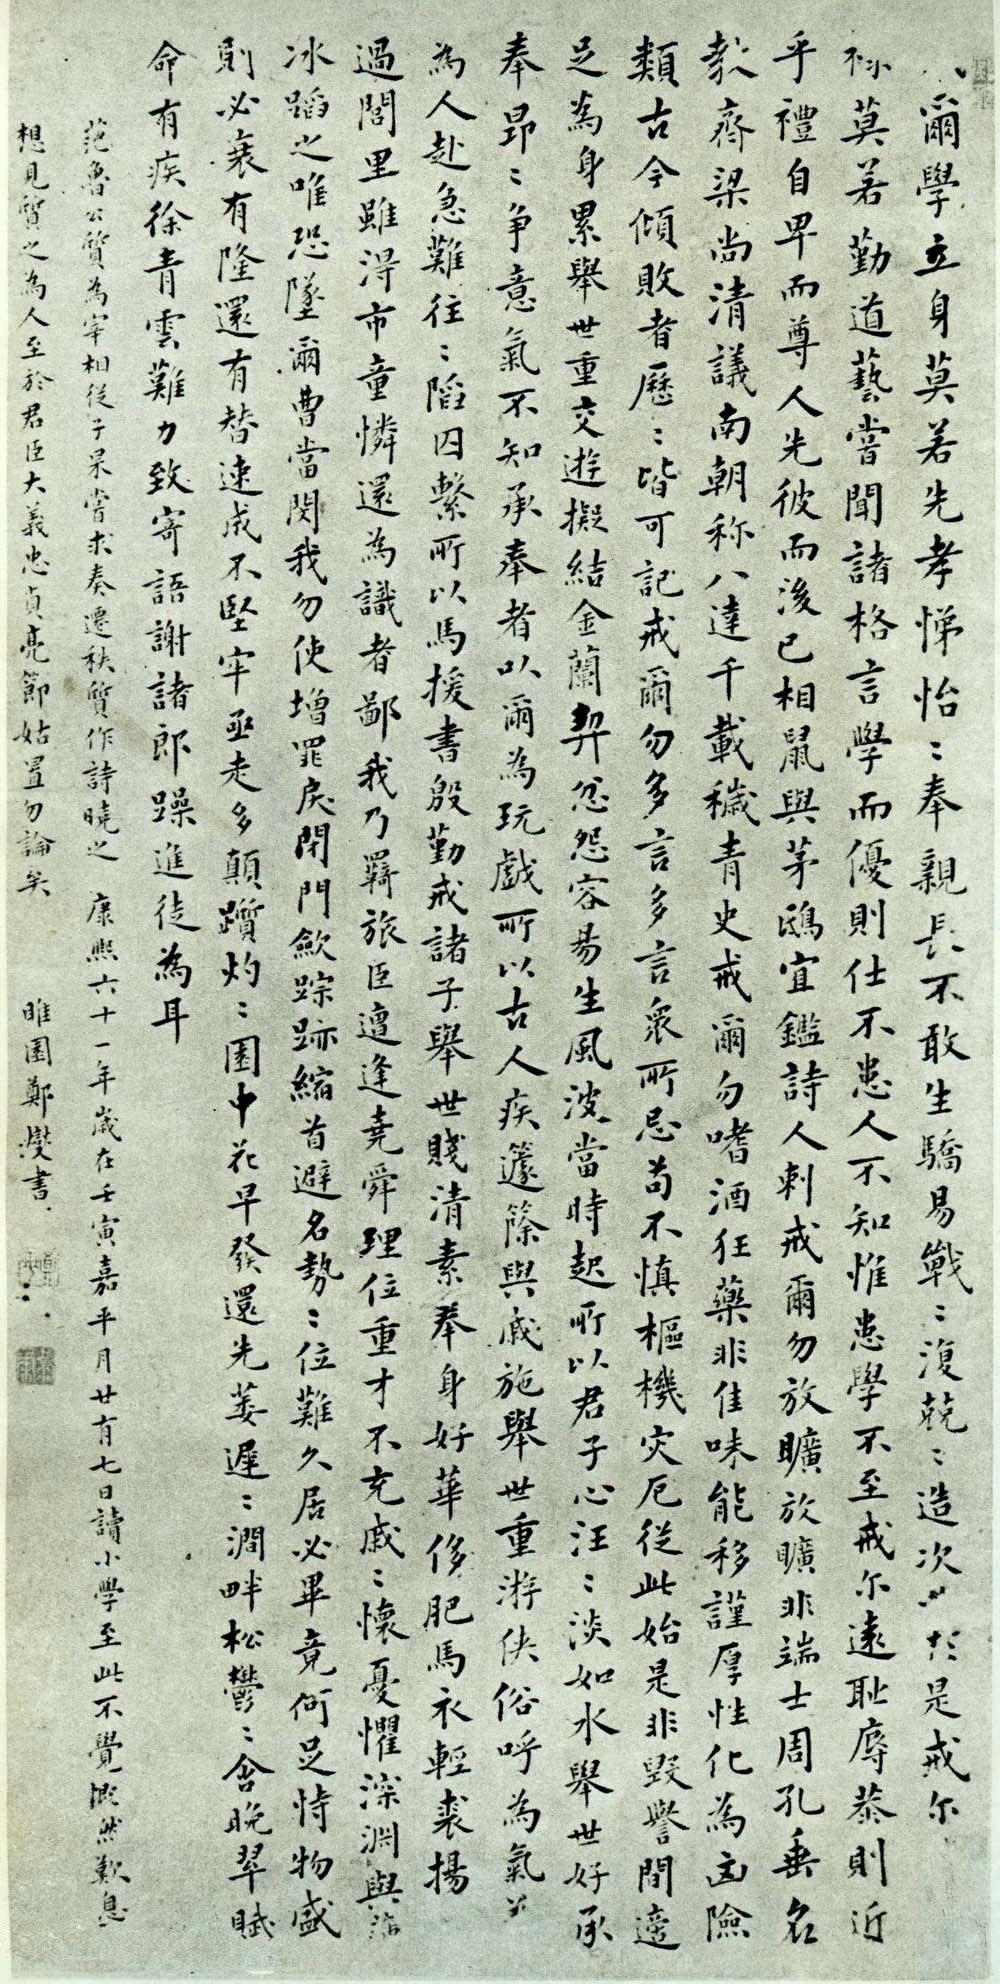 爾學立身莫若先孝悌怡〻奉親長不敢生驕易戰〻復兢〻造次是戒尔
祿莫若勤道藝嘗聞諸格言學而優則仕不患人不知惟患學不至戒尔遠恥辱恭則近
乎禮自卑而尊人先彼而後己相鼠與茅鴟宜鑑詩人刺戒爾勿放曠放曠非端士周孔垂名
教齊梁尚清議南朝称八達千載穢青史戒爾勿嗜酒狂藥非佳味能移謹厚性化為凶險
類古今傾敗者歷〻皆可記戒爾勿多言多言衆所忌苟不慎樞機灾厄從此始是非毀譽間適
足為身累舉世重交遊擬結金蘭契忿怨容易生風波當時起所以君子心汪〻淡如水舉世好承
奉昂〻爭意氣不知承奉者以爾為玩戲所以古人疾籧篨與戚施舉世重游俠俗呼為氣
為人赴急難往〻陷囚繫所以馬援書殷勤戒諸子舉世賤清素奉身好華侈肥馬衣輕裘揚
過閭里雖得市童憐還為識者鄙我乃羇旅臣遭逢堯舜理位重才不充戚〻懷憂懼深淵與
冰蹈之唯恐墜爾曹當閔我勿使增罪戾閉門歛踪跡縮首避名勢〻位難久居必畢竟何足恃物盛
則必衰有隆還有替速成不堅牢亟走多顛躓灼〻園中花早發還先萎遲〻澗畔松鬱〻含晚翠賦
命有疾徐青雲難力致寄語謝諸郎躁進徒為耳
范魯公質為宰相從子杲嘗求奏遷秩質作詩曉之 康熙六十一年歲在壬寅嘉平月廿有七日讀小學至此不覺慨然歎息
想見質之為人至於君臣大義忠貞亮節姑置勿論矣 睢園鄭燮書